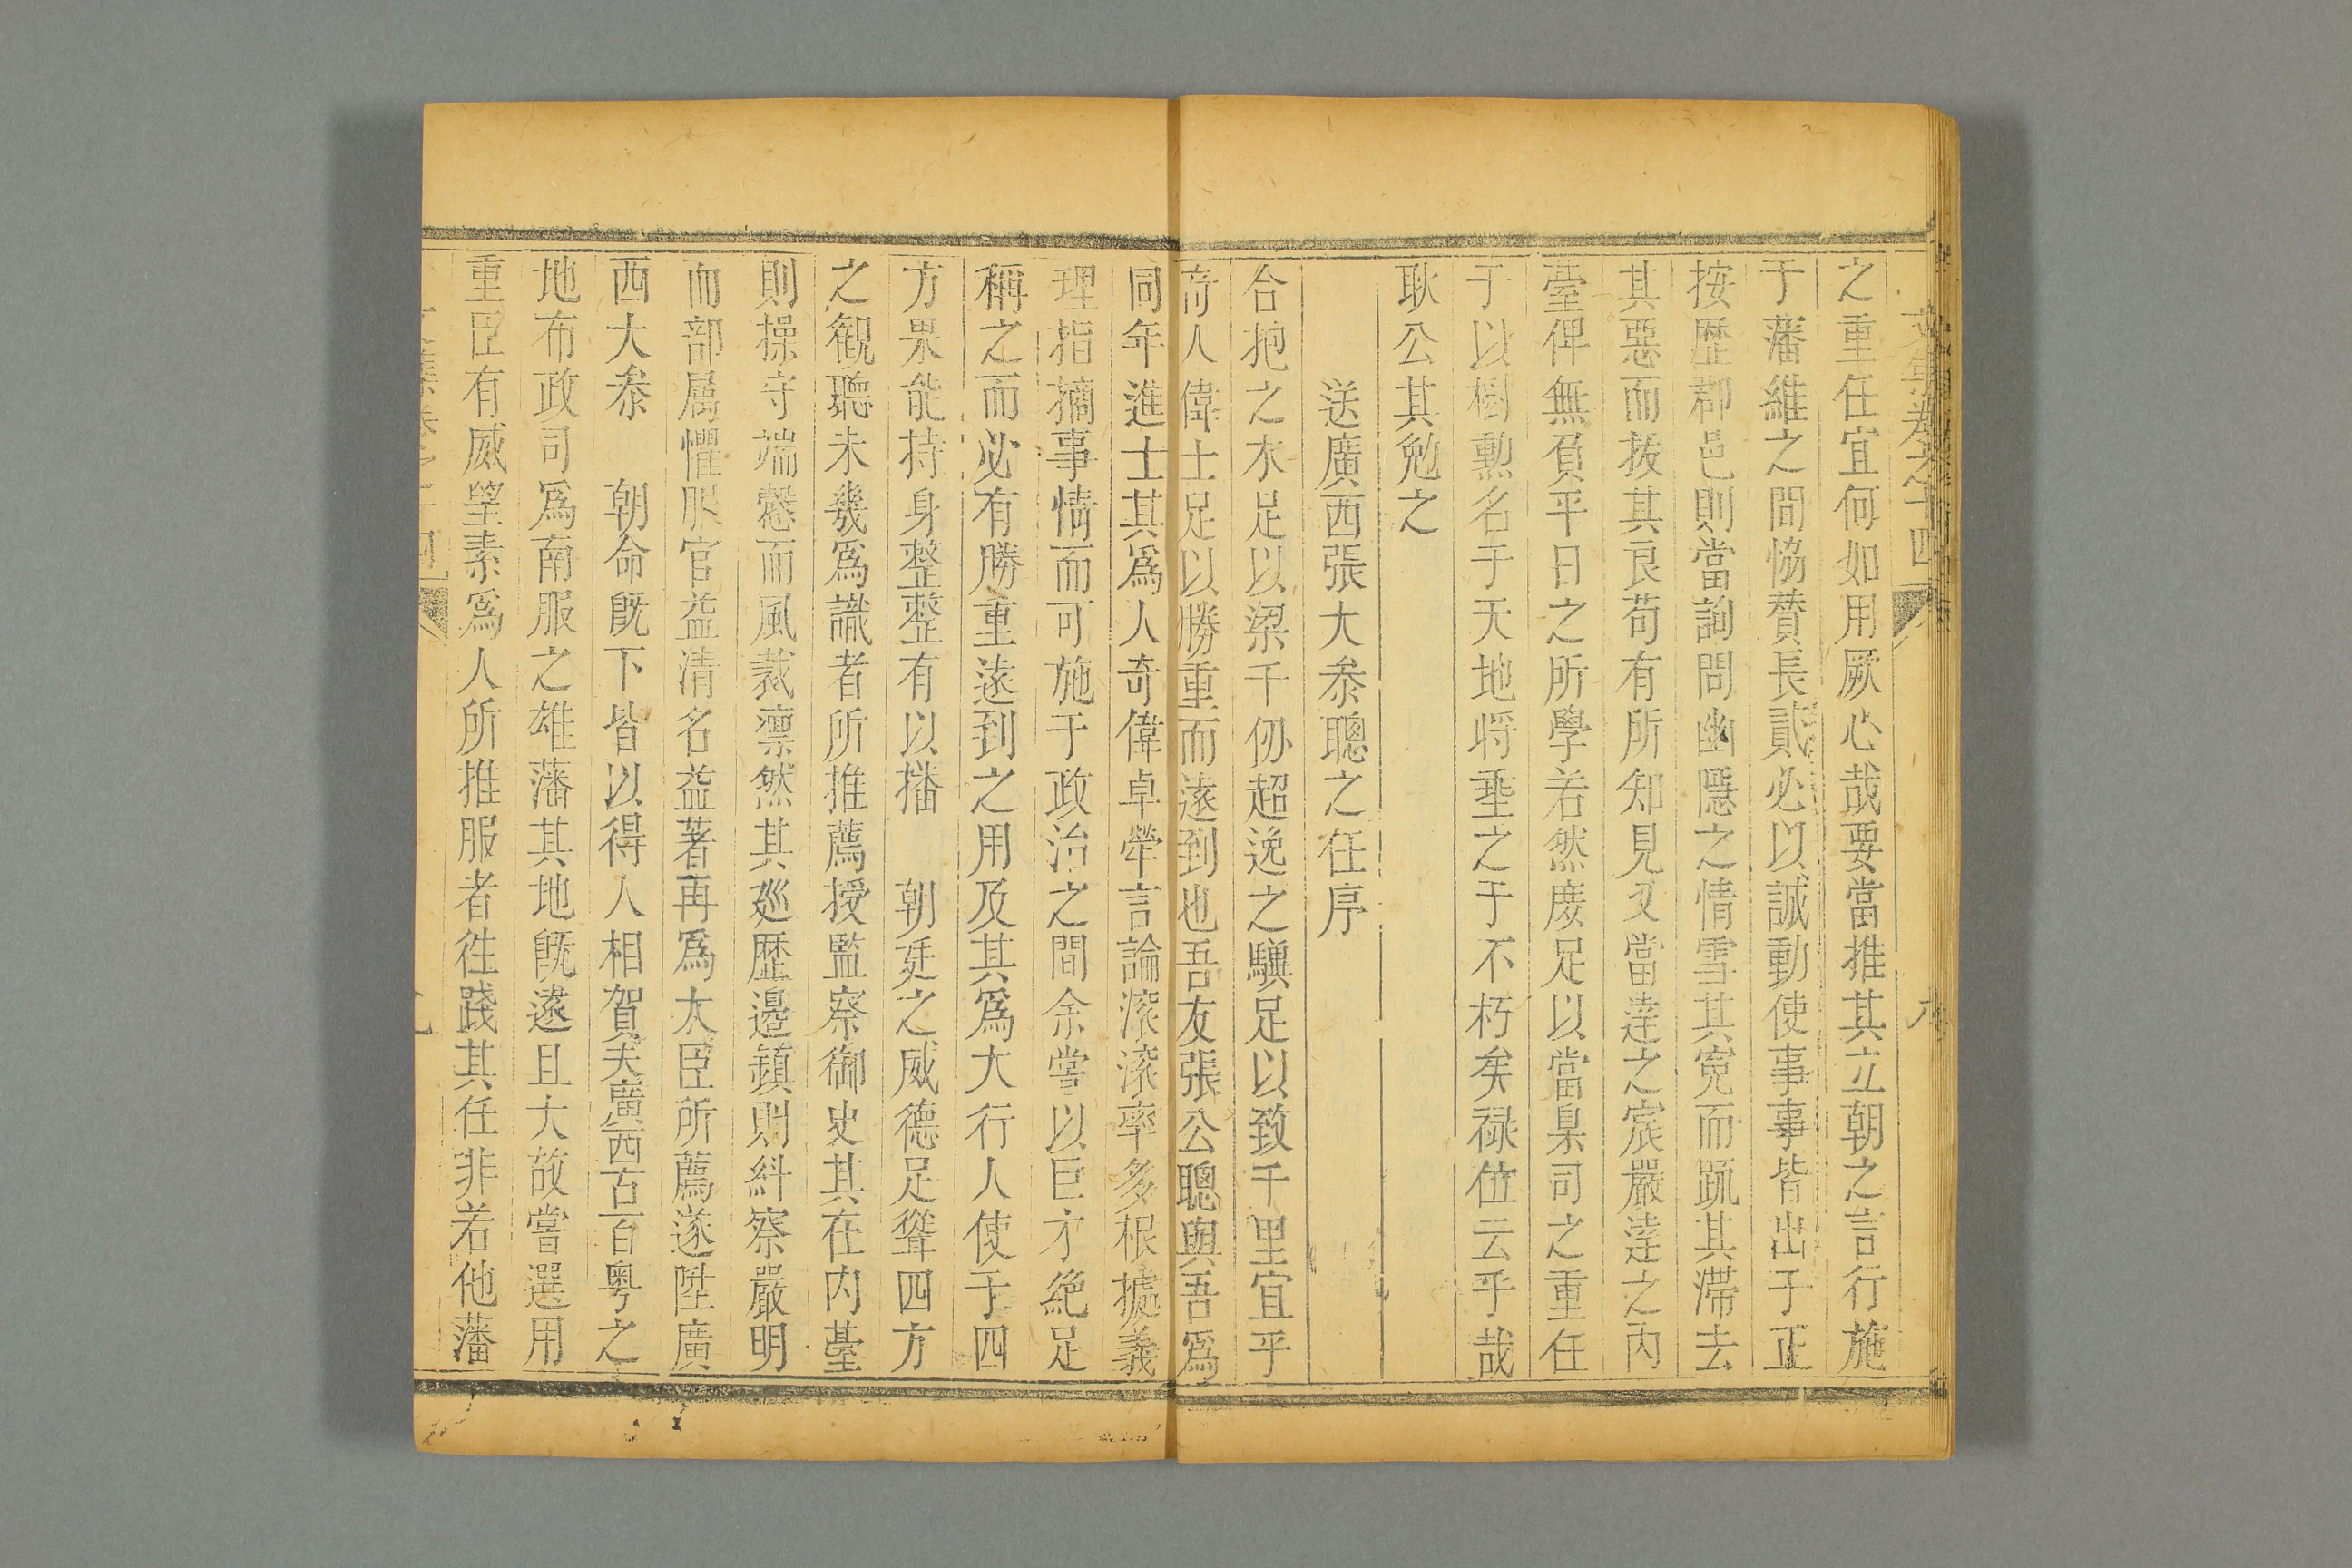 文集卷之十四
之重任宜何如用厥心哉要當推其立朝之言行施
于藩維之間恊賛長貳必以誠動使事事皆出于正
按歷郡邑則當詢問幽隱之情雪其寃而䟽其滯去
其惡而拔其良苟有所知見又當達之宸嚴達之内
臺俾無負平日之所學若然庶足以當臬司之重任
于以樹勲名于天地将垂之于不朽矣禄位云乎哉
耿公其勉之
送廣西張大叅聰之任序
合抱之木足以梁千仞超逸之驥足以致千里宜乎
奇人偉士足以勝重而遠到也吾友張公聰與吾爲
同年進士其爲人奇偉卓犖言論滚滚率多根據義
理指摘事情而可施于政治之間余嘗以巨才絶足
稱之而必有勝重遠到之用及其爲大行人使于四
方果能持身整整有以播 朝廷之威德足聳四方
之觀聽未幾爲識者所推薦授監察御史其在内臺
則操守端慤而風裁凛然其廵歷邊鎮則糾察嚴明
而部属懼服官益清名益著再爲大臣所薦遂陞廣
西大叅 朝命既下皆以得人相賀夫廣西古百粤之
地布政司爲南服之雄藩其地既遠且大故嘗選用
重臣有威望素爲人所推服者徃踐其任非若他藩